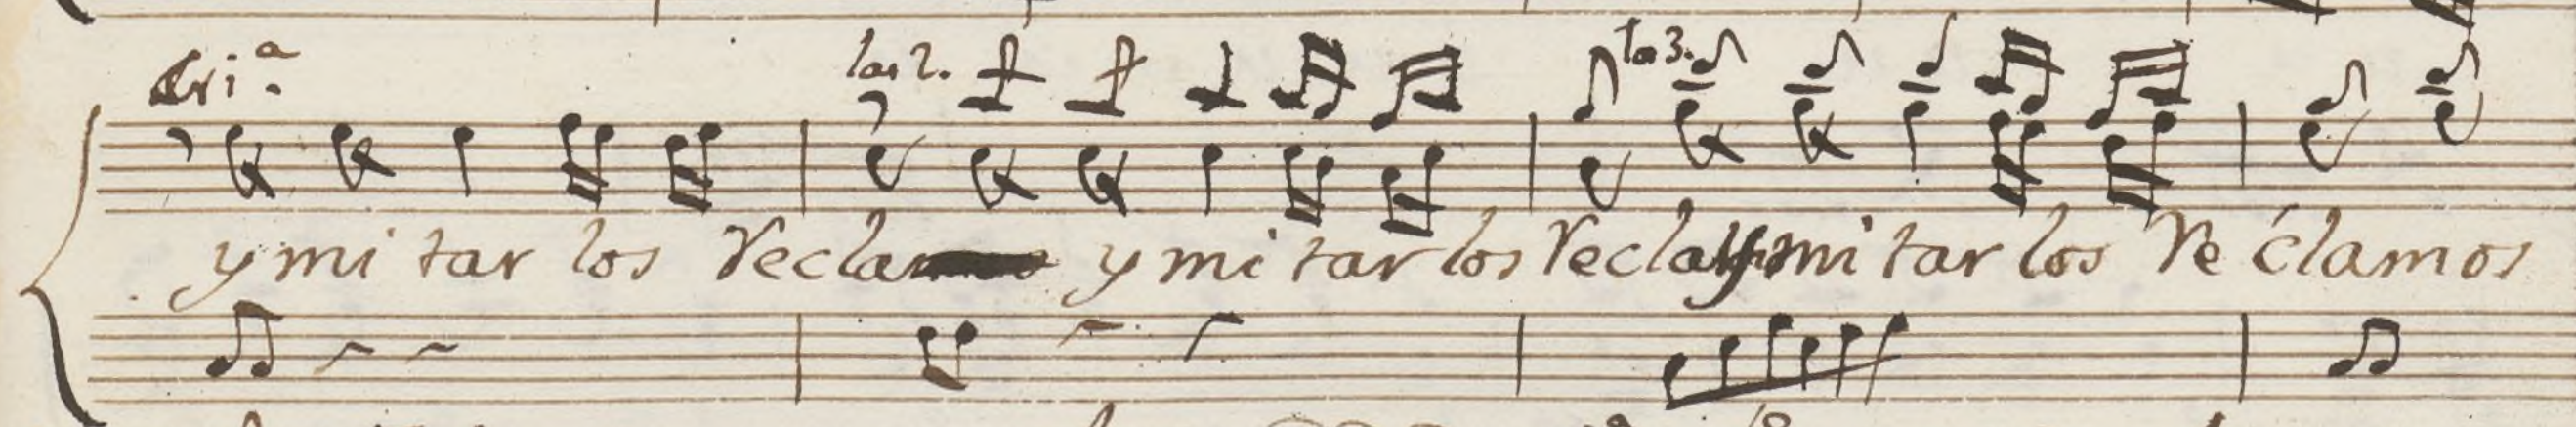 Cri.ª las 2. las 3.
y mi tar los Recla y mi tar los Recla y mi tar los Re clamos